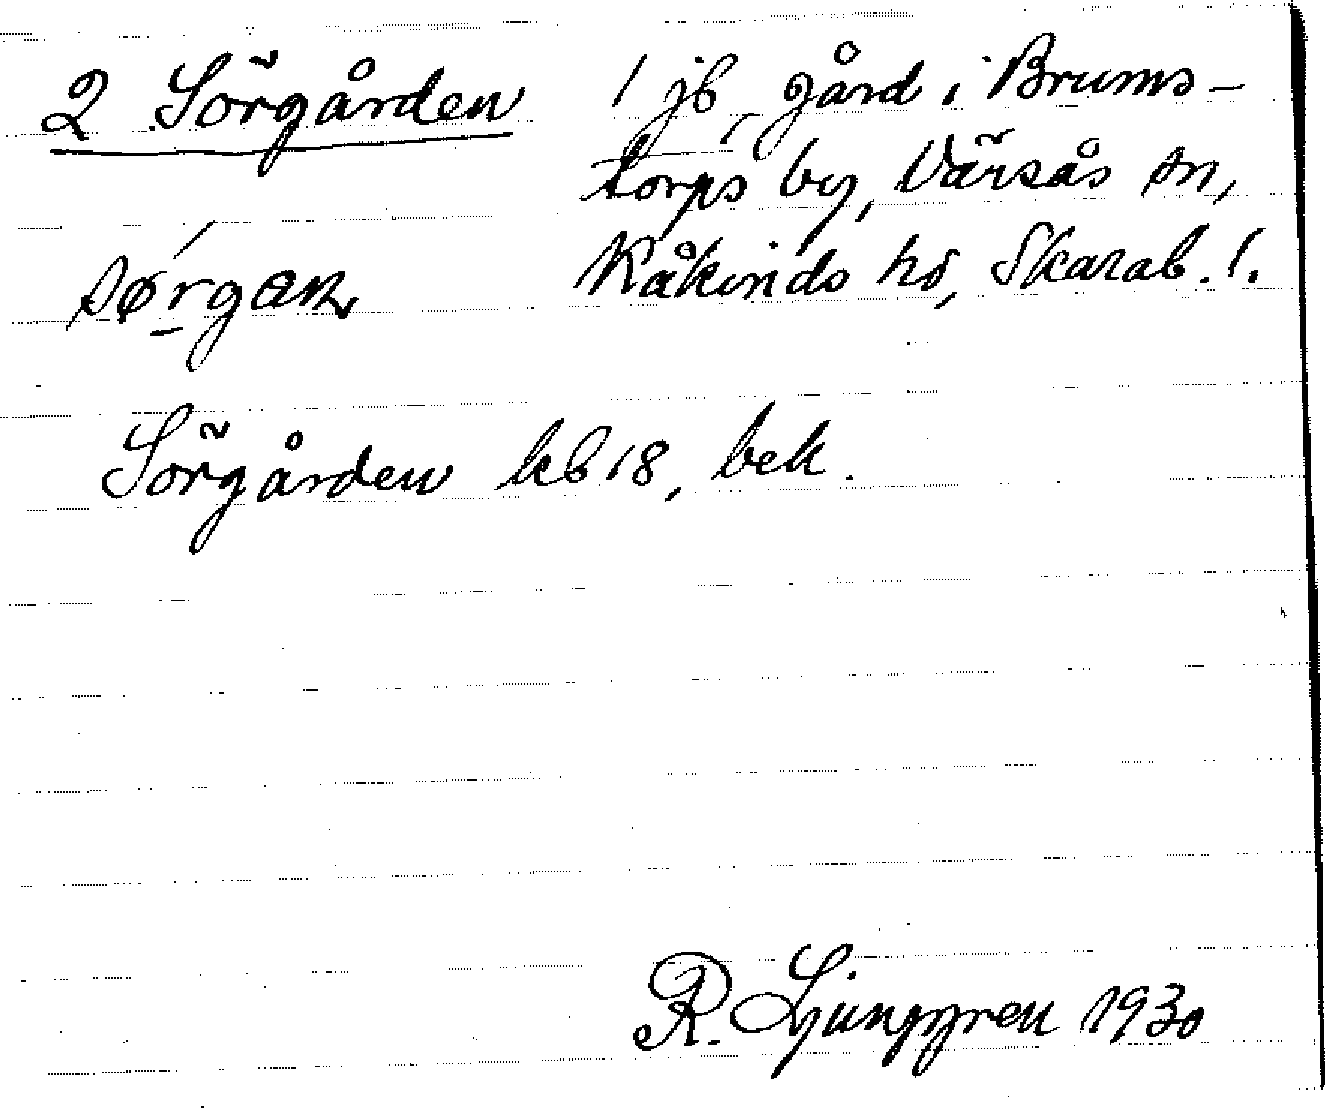 2 Sörgården
1 jb, gård i Brums-
torps by, Värsås sn,
Kåkinds hd, Skarab. l.
sørgan
Sörgården kb 18, bek.
R. Ljunggren 1930